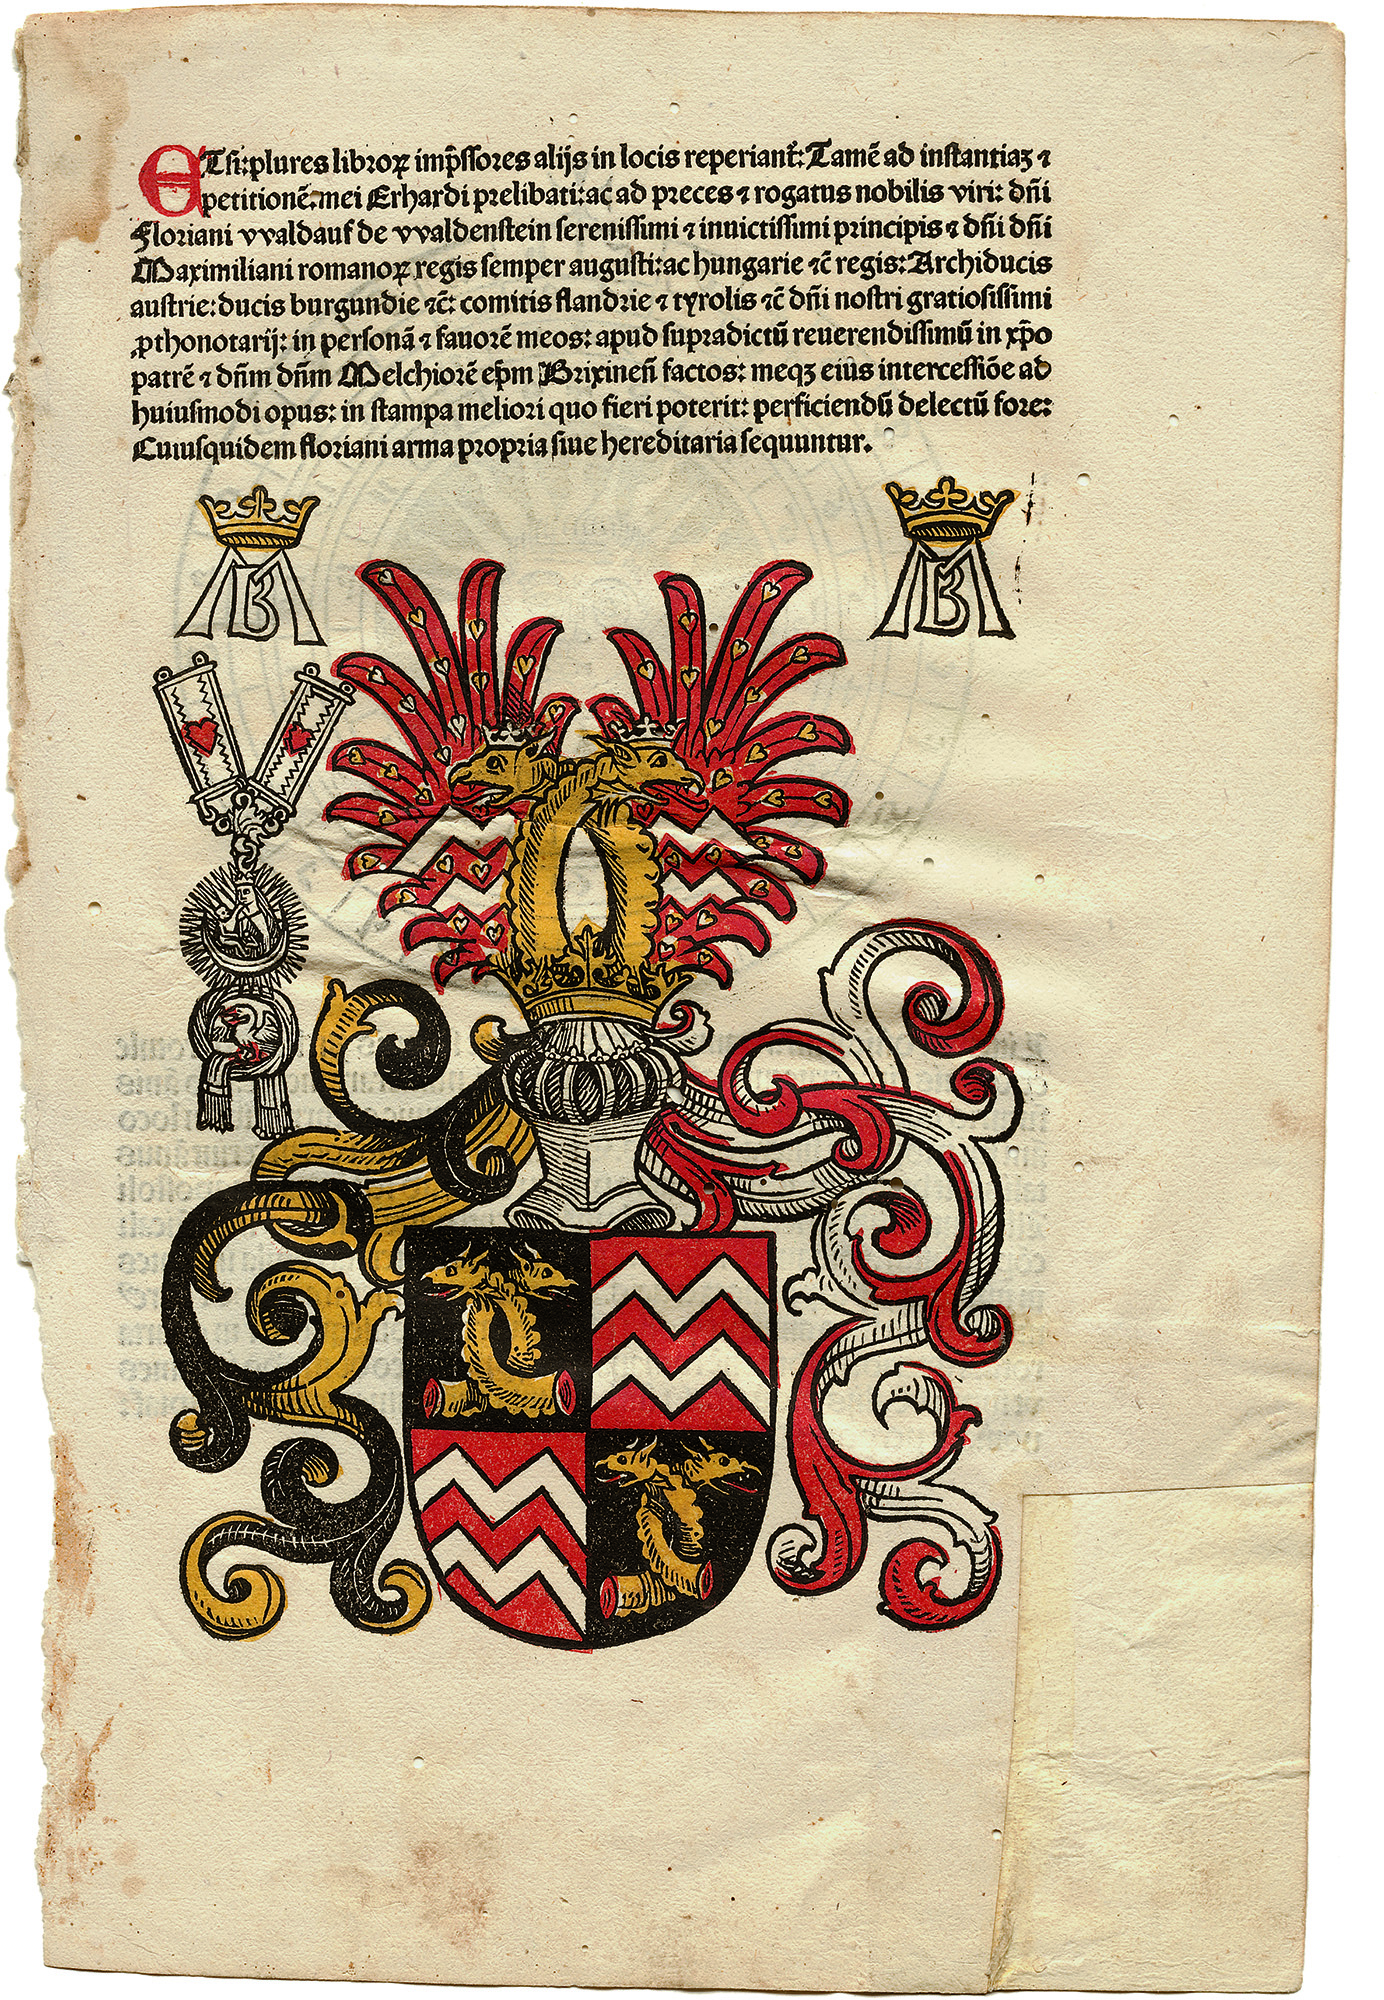 ETsi: plures libroꝝ imp̄ssores alijs in locis reperiant᷑: Tamē ad instantiaꝫ ⁊
petitionē: mei Erhardi prelibati: ac ad preces ⁊ rogatus nobilis viri: dn̄i
Floriani vvaldauf de vvaldenstein serenissimi ⁊ inuictissimi principis ⁊ dn̄i dn̄i
Maximiliani romanoꝝ regis semper augusti: ac hungarie ⁊c̄ regis: Archiducis
austrie: ducis burgundie ⁊c̄: comitis flandrie ⁊ tyrolis ⁊c̄ dn̄i nostri gratiosissimi
ꝓthonotarij: in personā ⁊ fauorē meos: apud supradictū reuerendissimū in xp̄o
patrē ⁊ dn̄m dn̄m Melchiorē ep̄m Brixinen̄ factos: meqꝫ eius intercessiōe ad
huiusmodi opus: in stampa meliori quo fieri poterit: perficiendū delectū fore:
Cuiusquidem floriani arma propria siue hereditaria sequuntur.